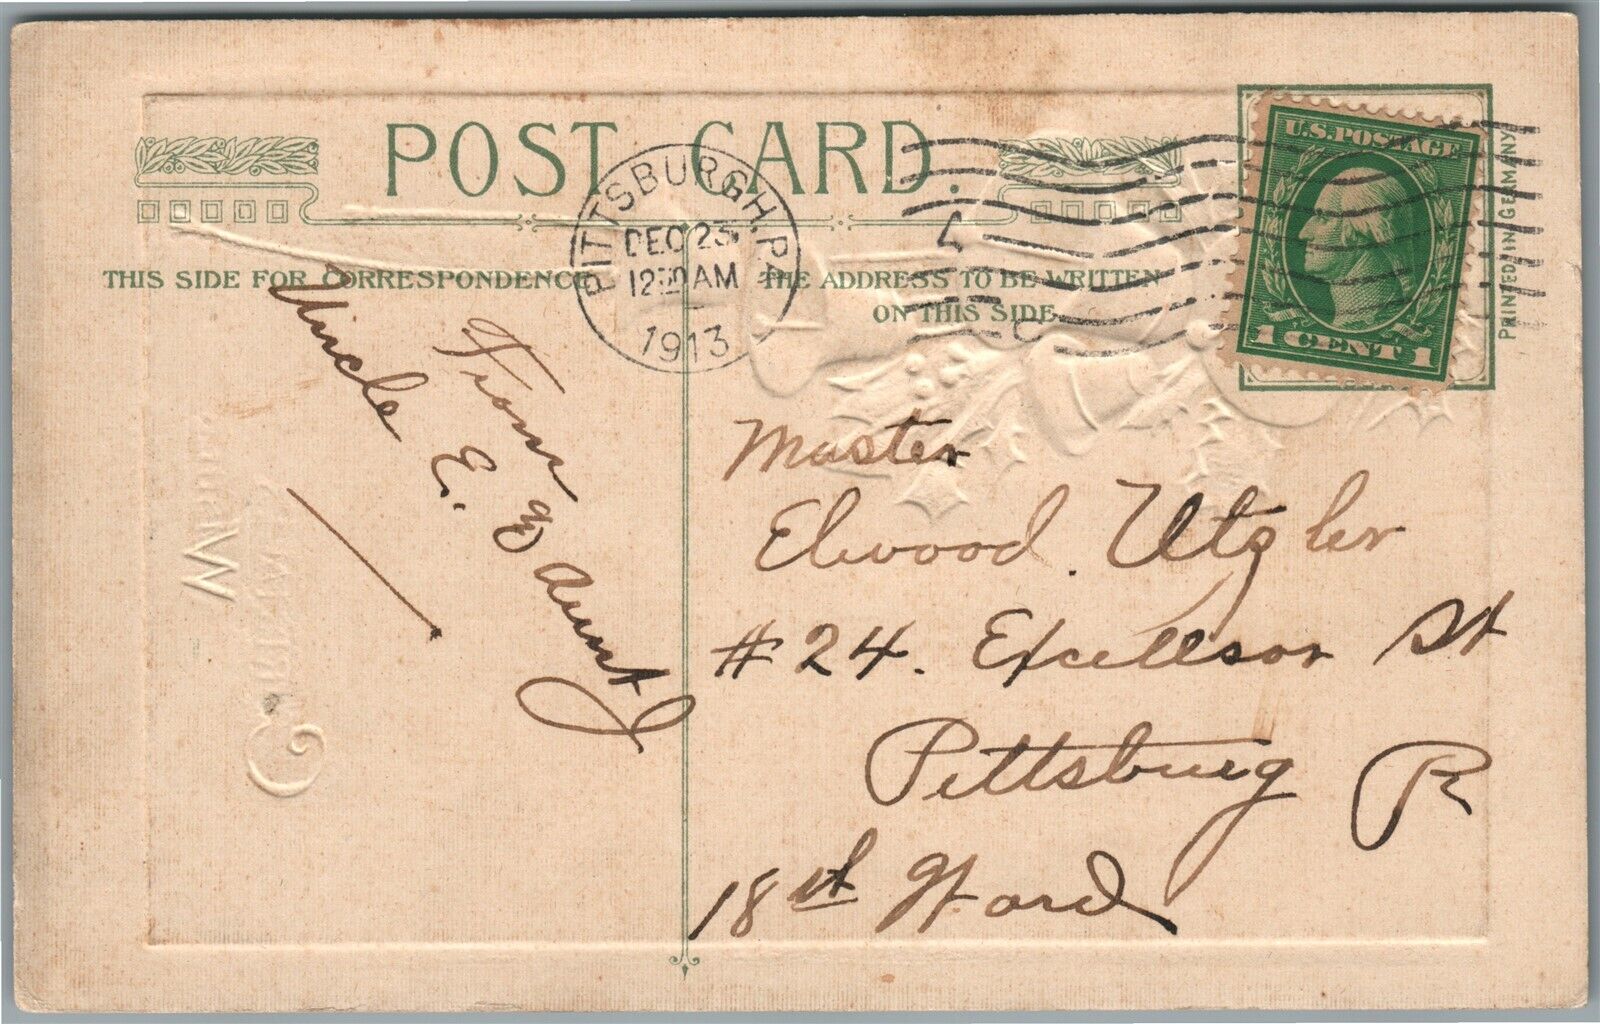 POST CARD.
THIS SIDE FOR CORRESPONDENCE
THE ADDRESS TO BE WRITTEN
ON THIS SIDE
PITTSBURGH, PA
DEC 23
12 30 AM
1913
U.S. POSTAGE
1 CENT 1
PRINTED IN GERMANY
From
Uncle E. & Aunt
Master
Elwood Utzler
#24. Excellsor St
Pittsburg P
18th Ward